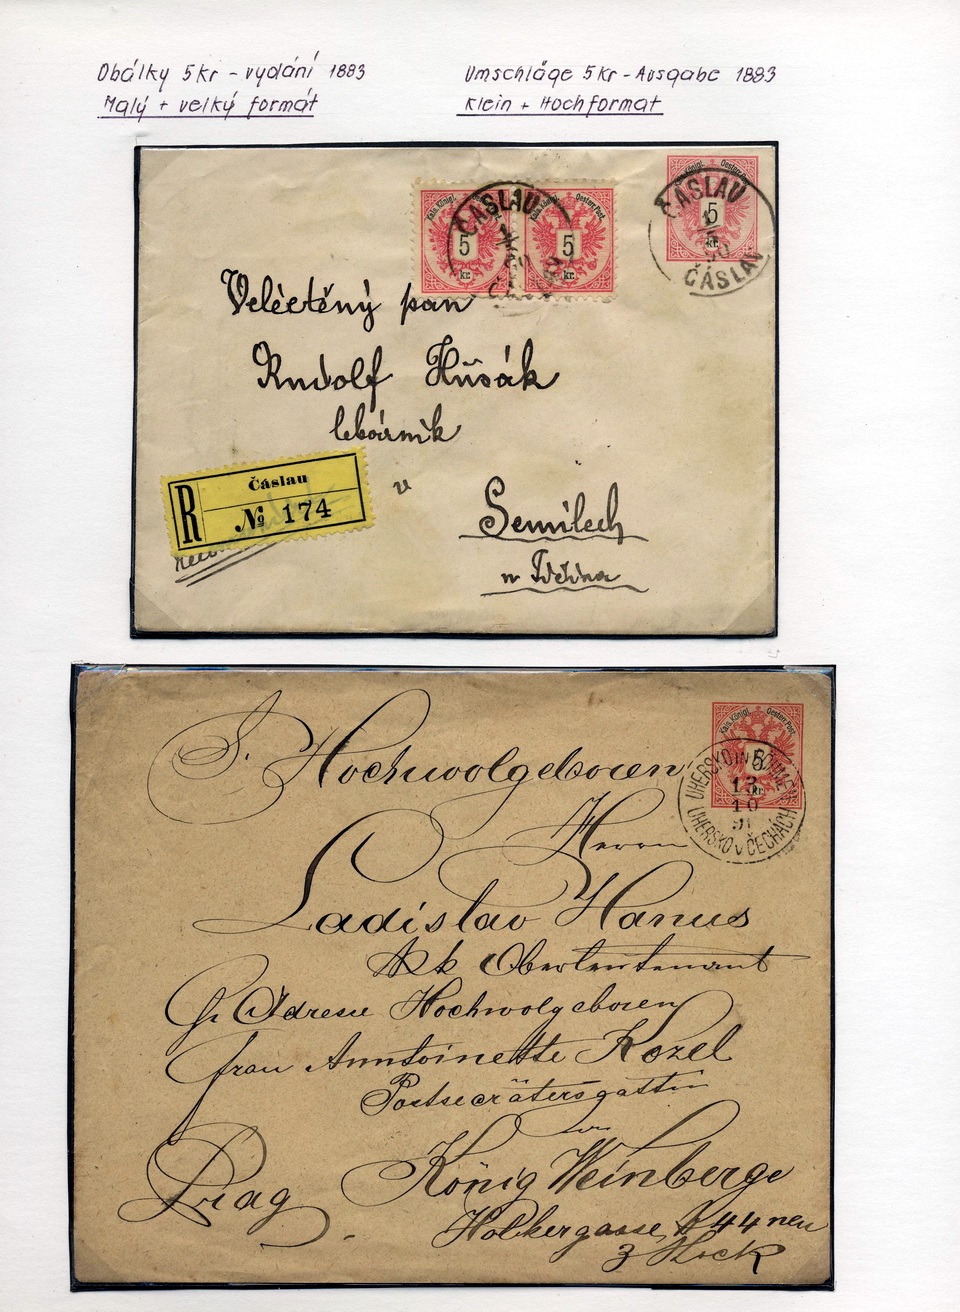 Obálky 5kr - vydání 1883
Malý + velký formát
Umschläge 5kr - Ausgabe 1883
Klein + Hochformat
Kais. Königl. Oesterr. Post.
5
kr.
Kais. Königl. Oesterr. Post.
5
kr.
ČÁSLAU
ČÁSLAV
Kais. Königl. Oesterr. Post.
5
kr.
ČÁSLAU
ČÁSLAV
Velectěný pan
Rudolf Husák
v
Semilech
R
Čáslau
№ 174
Kais. Königl. Oesterr. Post.
5
kr.
UHERSKO IN BÖHMEN
13
10
91
UHERSKO v ČECHÁCH
S. Hochwolgeboren
Herrn
Ladislav Hanus
k k Oberleutenant
Adresse Hochwolgeboren
frau Anntoinette Kozel
Postsecrätersgattin
in
Prag König Weinberge
Halekergasse 44 neu
3 Stock